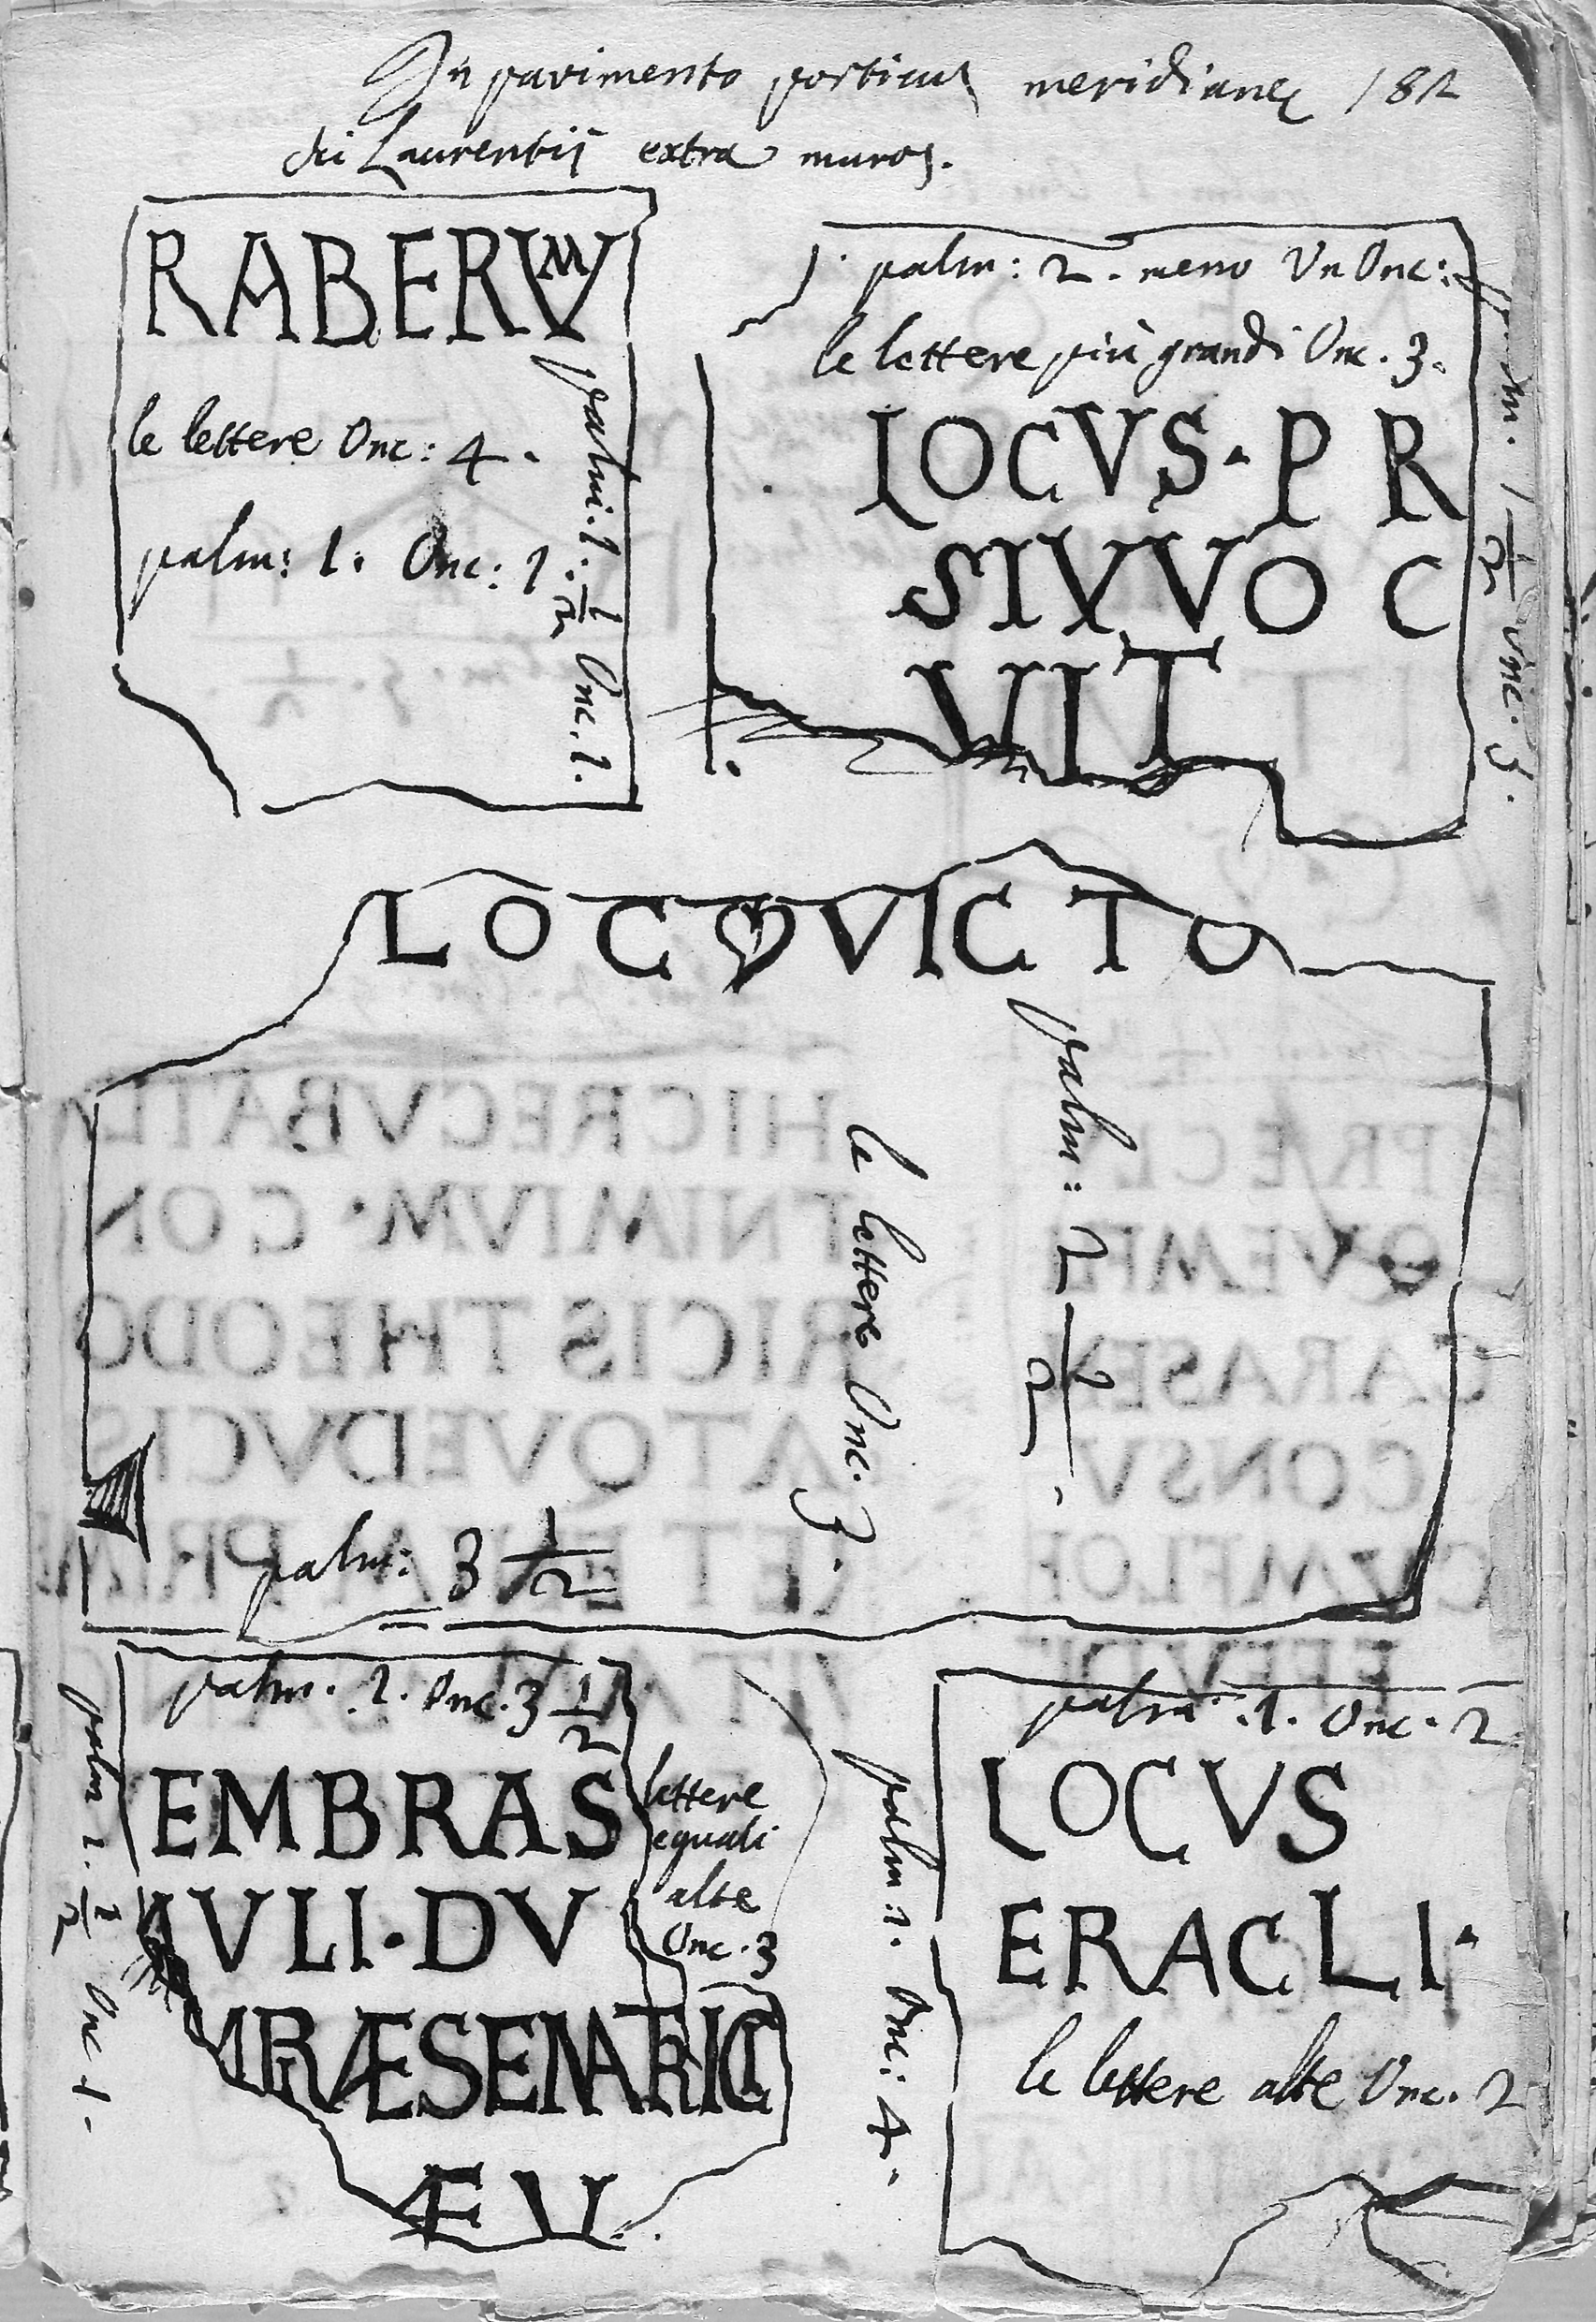 In pavimento porticus meridianę 182
sti Laurentii extra muros.
RABERIVM
le lettere Onc: 4.
palm: 1. Onc: 1
palmi. 1. 1/2 Onc. 1.
palm: 2. meno Vn Onc:
le lettere più grandi Onc. 3.
LOCVS · P R
SIVVO C
VIT
palm. 1 1/2 Onc. 3.
LOC VICTO
palm: 2 1/2.
le lettere Onc. 3.
palm: 3 1/2
palm. 1. Onc. 3 1/2
EMBRAS
IVLI · DV
PRÆSENTI
ÆV
lettere
equali
alte
Onc. 3
palm 1. 1/2 Onc 4.
palm. 1. Onc. 2
LOCVS
ERACLI ·
le lettere alte Onc. 2
palm: 1. Onc: 4.